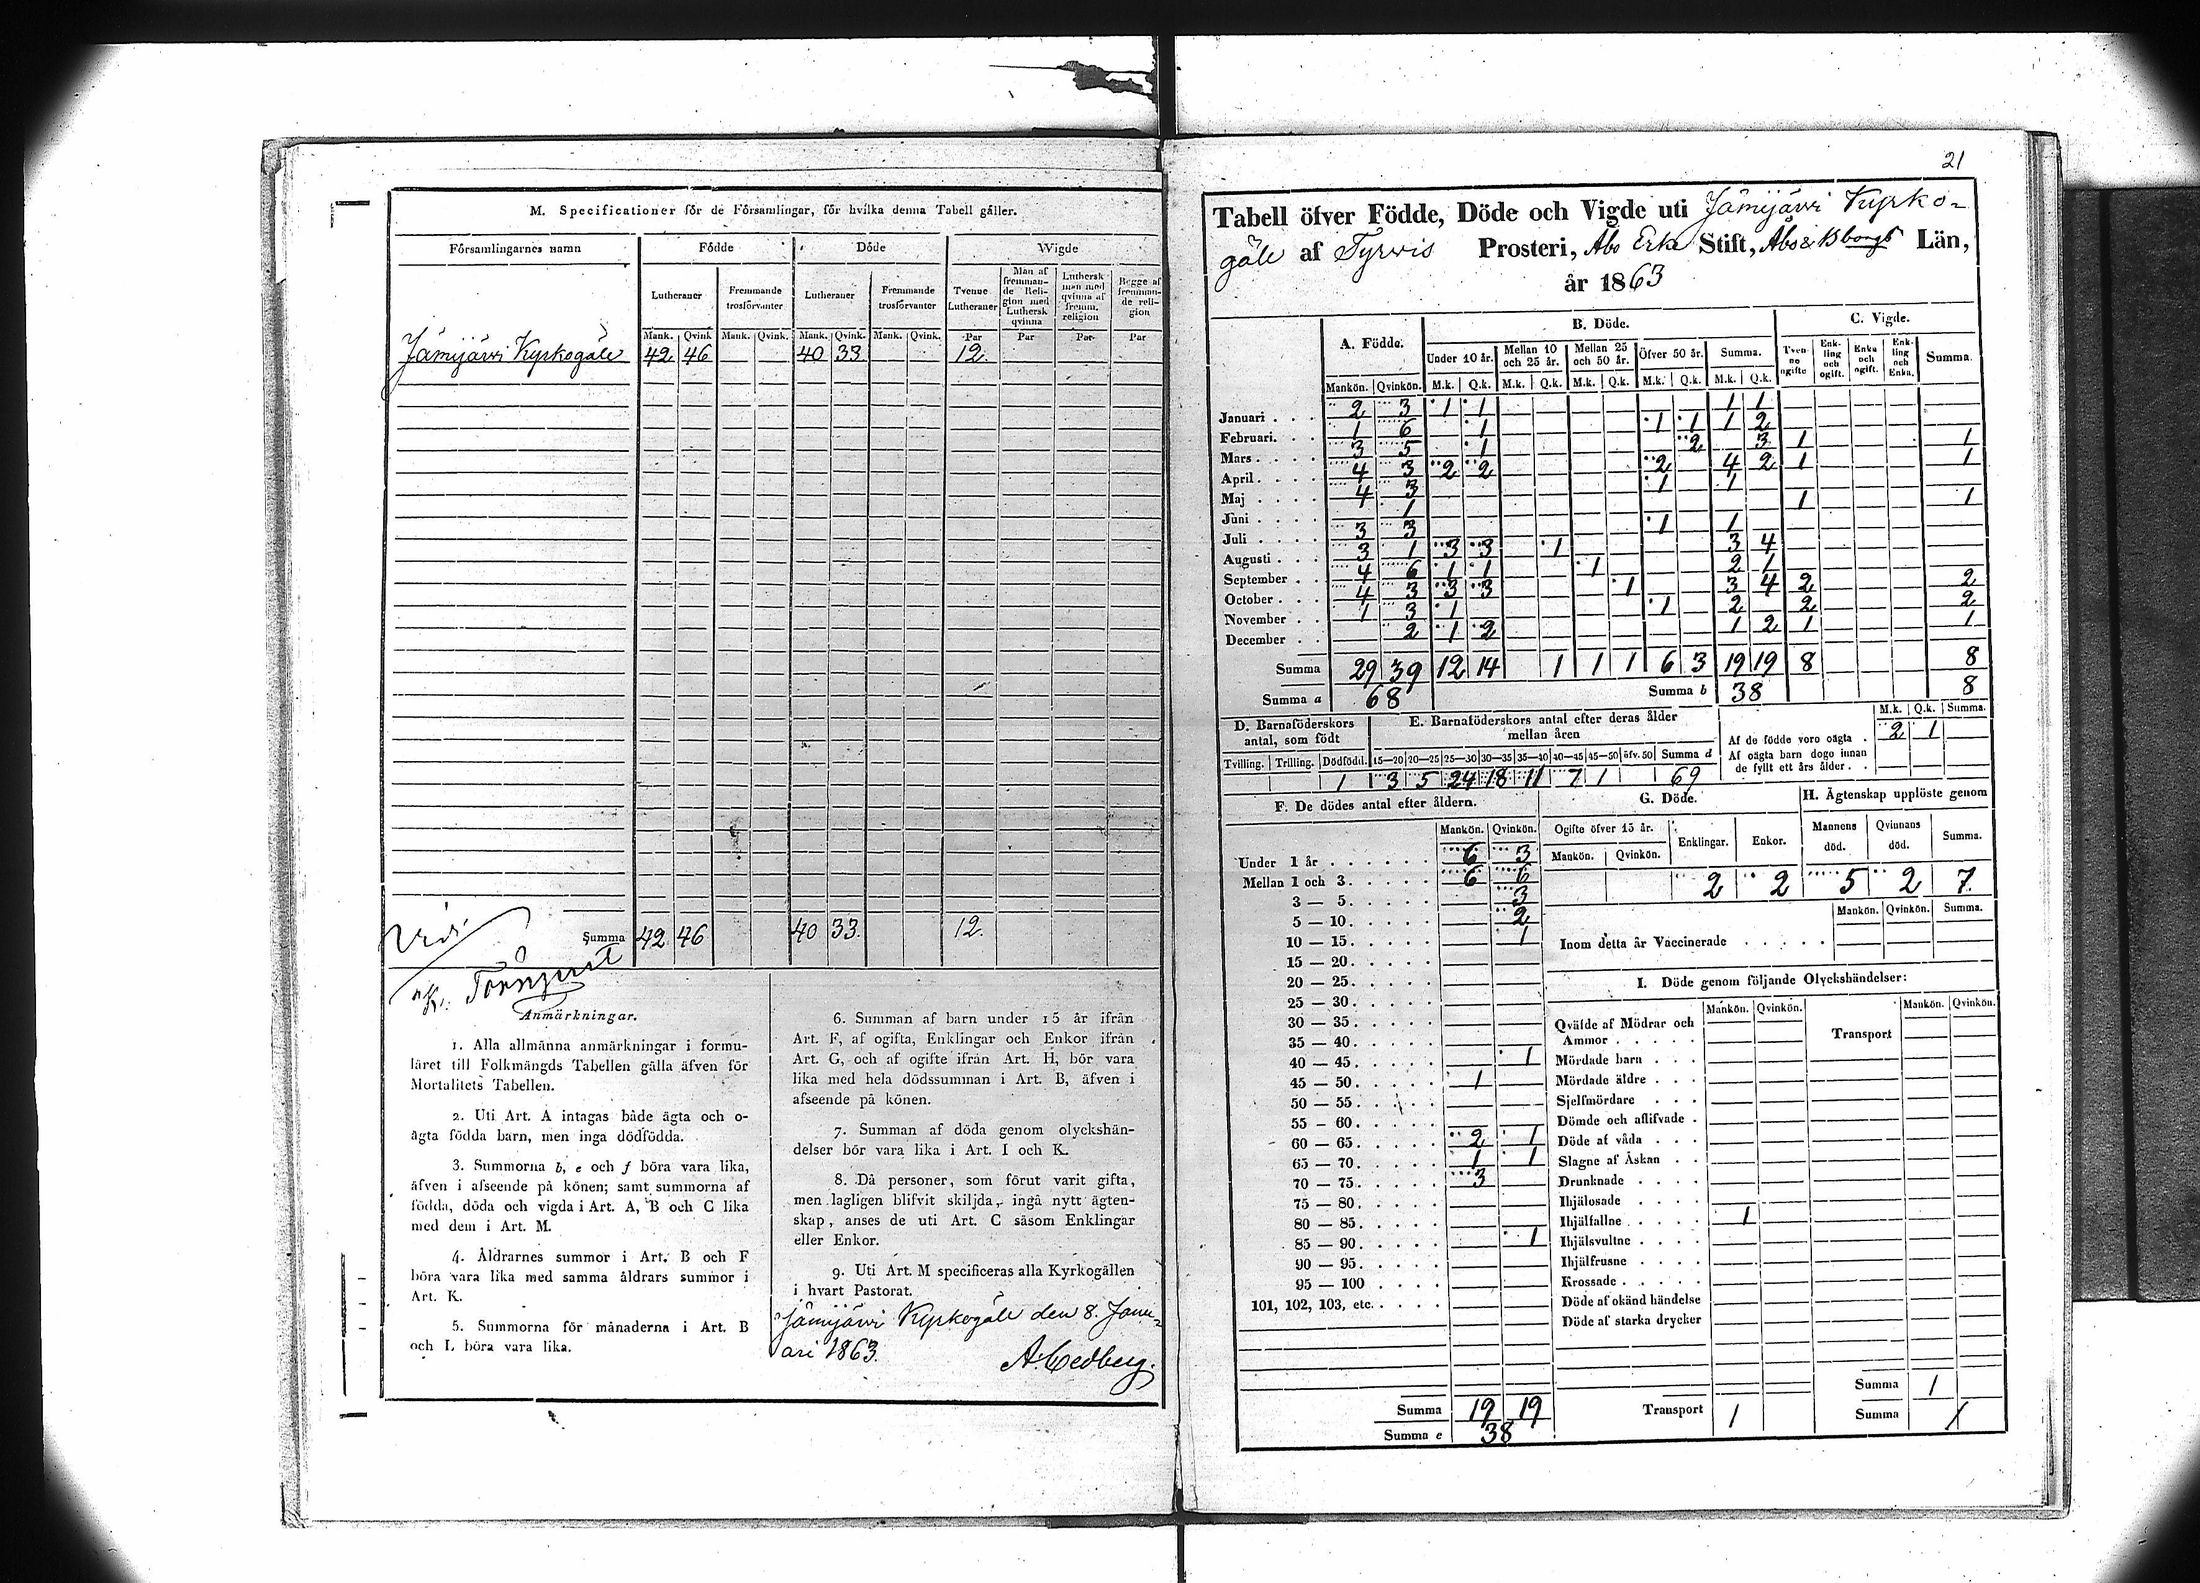 M. Specificationer för de Församlingar, för hvilka denna Tabell gäller.
Församlingarnes namn | Födde | Döde | Wigde
Lutheraner | Fremmande trosförvanter | Lutheraner | Fremmande trosförvanter | Tvenne Lutheraner | Man af fremmande Religion med Luthersk qvinna | Luthersk man med qvinna af fremm. religion | Begge af fremmande religion
Mank. | Qvink. | Mank. | Qvink. | Mank. | Qvink. | Mank. | Qvink. | Par | Par | Par | Par
Jämijärvi Kyrkogäle 42 46 40 33 12
Summa 42 46 40 33 12.
Törnqvist
Anmärkningar.
1. Alla allmänna anmärkningar i formu-
läret till Folkmängds Tabellen gälla äfven för
Mortalitets Tabellen.
2. Uti Art. A intagas både ägta och o-
ägta födda barn, men inga dödfödda.
3. Summorna b, e och f böra vara lika,
äfven i afseende på könen; samt summorna af
födda, döda och vigda i Art. A, B och C lika
med dem i Art. M.
4. Åldrarnes summor i Art. B och F
böra vara lika med samma åldrars summor i
Art. K.
5. Summorna för månaderna i Art. B
och L böra vara lika.
6. Summan af barn under 15 år ifrån
Art. F, af ogifta, Enklingar och Enkor ifrån
Art. G, och af ogifte ifrån Art. H, bör vara
lika med hela dödssumman i Art. B, äfven i
afseende på könen.
7. Summan af döda genom olyckshän-
delser bör vara lika i Art. I och K.
8. Då personer, som förut varit gifta,
men lagligen blifvit skiljda, ingå nytt ägten-
skap, anses de uti Art. C såsom Enklingar
eller Enkor.
9. Uti Art. M specificeras alla Kyrkogällen
i hvart Pastorat.
Jämijärvi Kyrkogäle den 8. Janu-
ari 1863.
A. Cedberg.
21
Tabell öfver Födde, Döde och Vigde uti Jämijärvi Kyrko-
gäle af Tyrvis Prosteri, Åbo Erke Stift, Åbo & Bborgs Län,
år 1863
A. Födde. | B. Döde. | C. Vigde.
Under 10 år. | Mellan 10 och 25 år. | Mellan 25 och 50 år. | Öfver 50 år. | Summa. | Tvenne ogifte | Enkling och ogift. | Enka och ogift. | Enkling och Enka. | Summa.
Mankön. | Qvinkön. | M.k. | Q.k. | M.k. | Q.k. | M.k. | Q.k. | M.k. | Q.k. | M.k. | Q.k.
Januari . . . 2 3 1 1 1 1
Februari. . . 1 6 1 1 1 1 2
Mars . . . . 3 5 1 2 3 1 1
April . . . . 4 3 2 2 2 4 2 1 1
Maj . . . . 4 3 1 1
Juni . . . . 1 1 1
Juli . . . . 3 3 1 1
Augusti . . . 3 1 3 3 1 3 4
September . . 4 6 1 1 1 2 1
October . . . 4 3 3 3 1 3 4 2 2
November . . 1 3 1 1 2 2 2
December . . 2 1 2 1 2 1 1
Summa 29 39 12 14 1 1 1 6 3 19 19 8 8
Summa a 68 Summa b 38 8
D. Barnaföderskors antal, som födt | E. Barnaföderskors antal efter deras ålder mellan åren
Tvilling. | Trilling. | Dödfödd. | 15—20 | 20—25 | 25—30 | 30—35 | 35—40 | 40—45 | 45—50 | öfv. 50 | Summa d
1 3 5 24 18 11 7 1 69
M.k. | Q.k. | Summa.
Af de födde voro oägta . 2 1
Af oägta barn dogo innan
de fyllt ett års ålder . .
F. De dödes antal efter åldern.
Mankön. | Qvinkön.
Under 1 år . . . . . . 6 3
Mellan 1 och 3 . . . . . 6 6
3 — 5 . . . . . 3
5 — 10 . . . . . 2
10 — 15 . . . . . 1
15 — 20 . . . . .
20 — 25 . . . . .
25 — 30 . . . . .
30 — 35 . . . . .
35 — 40 . . . . .
40 — 45 . . . . . 1
45 — 50 . . . . . 1
50 — 55 . . . . .
55 — 60 . . . . .
60 — 65 . . . . . 2 1
65 — 70 . . . . . 1 1
70 — 75 . . . . . 3
75 — 80 . . . . .
80 — 85 . . . . .
85 — 90 . . . . . 1
90 — 95 . . . . .
95 — 100 . . . .
101, 102, 103, etc. . . . .
Summa 19 19
Summa e 38
G. Döde.
Ogifte öfver 15 år. | Enklingar. | Enkor.
Mankön. | Qvinkön.
2 2
H. Ägtenskap upplöste genom
Mannens död. | Qvinnans död. | Summa.
5 2 7
Mankön. | Qvinkön. | Summa.
Inom detta år Vaccinerade . . . . .
I. Döde genom följande Olyckshändelser:
Mankön. | Qvinkön. | Mankön. | Qvinkön.
Qväfde af Mödrar och
Ammor . . . . . Transport
Mördade barn . . .
Mördade äldre . . .
Sjelfmördare . . .
Dömde och aflifvade .
Döde af våda . . .
Slagne af Åskan . .
Drunknade . . . .
Ihjälosade . . . .
Ihjälfallne . . . . . 1
Ihjälsvultne . . . .
Ihjälfrusne . . . .
Krossade . . . . .
Döde af okänd händelse
Döde af starka drycker
Summa 1
Transport 1 Summa 1